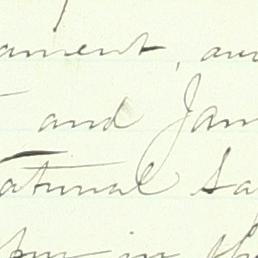 ament, an
and Jam
atural sa
in th